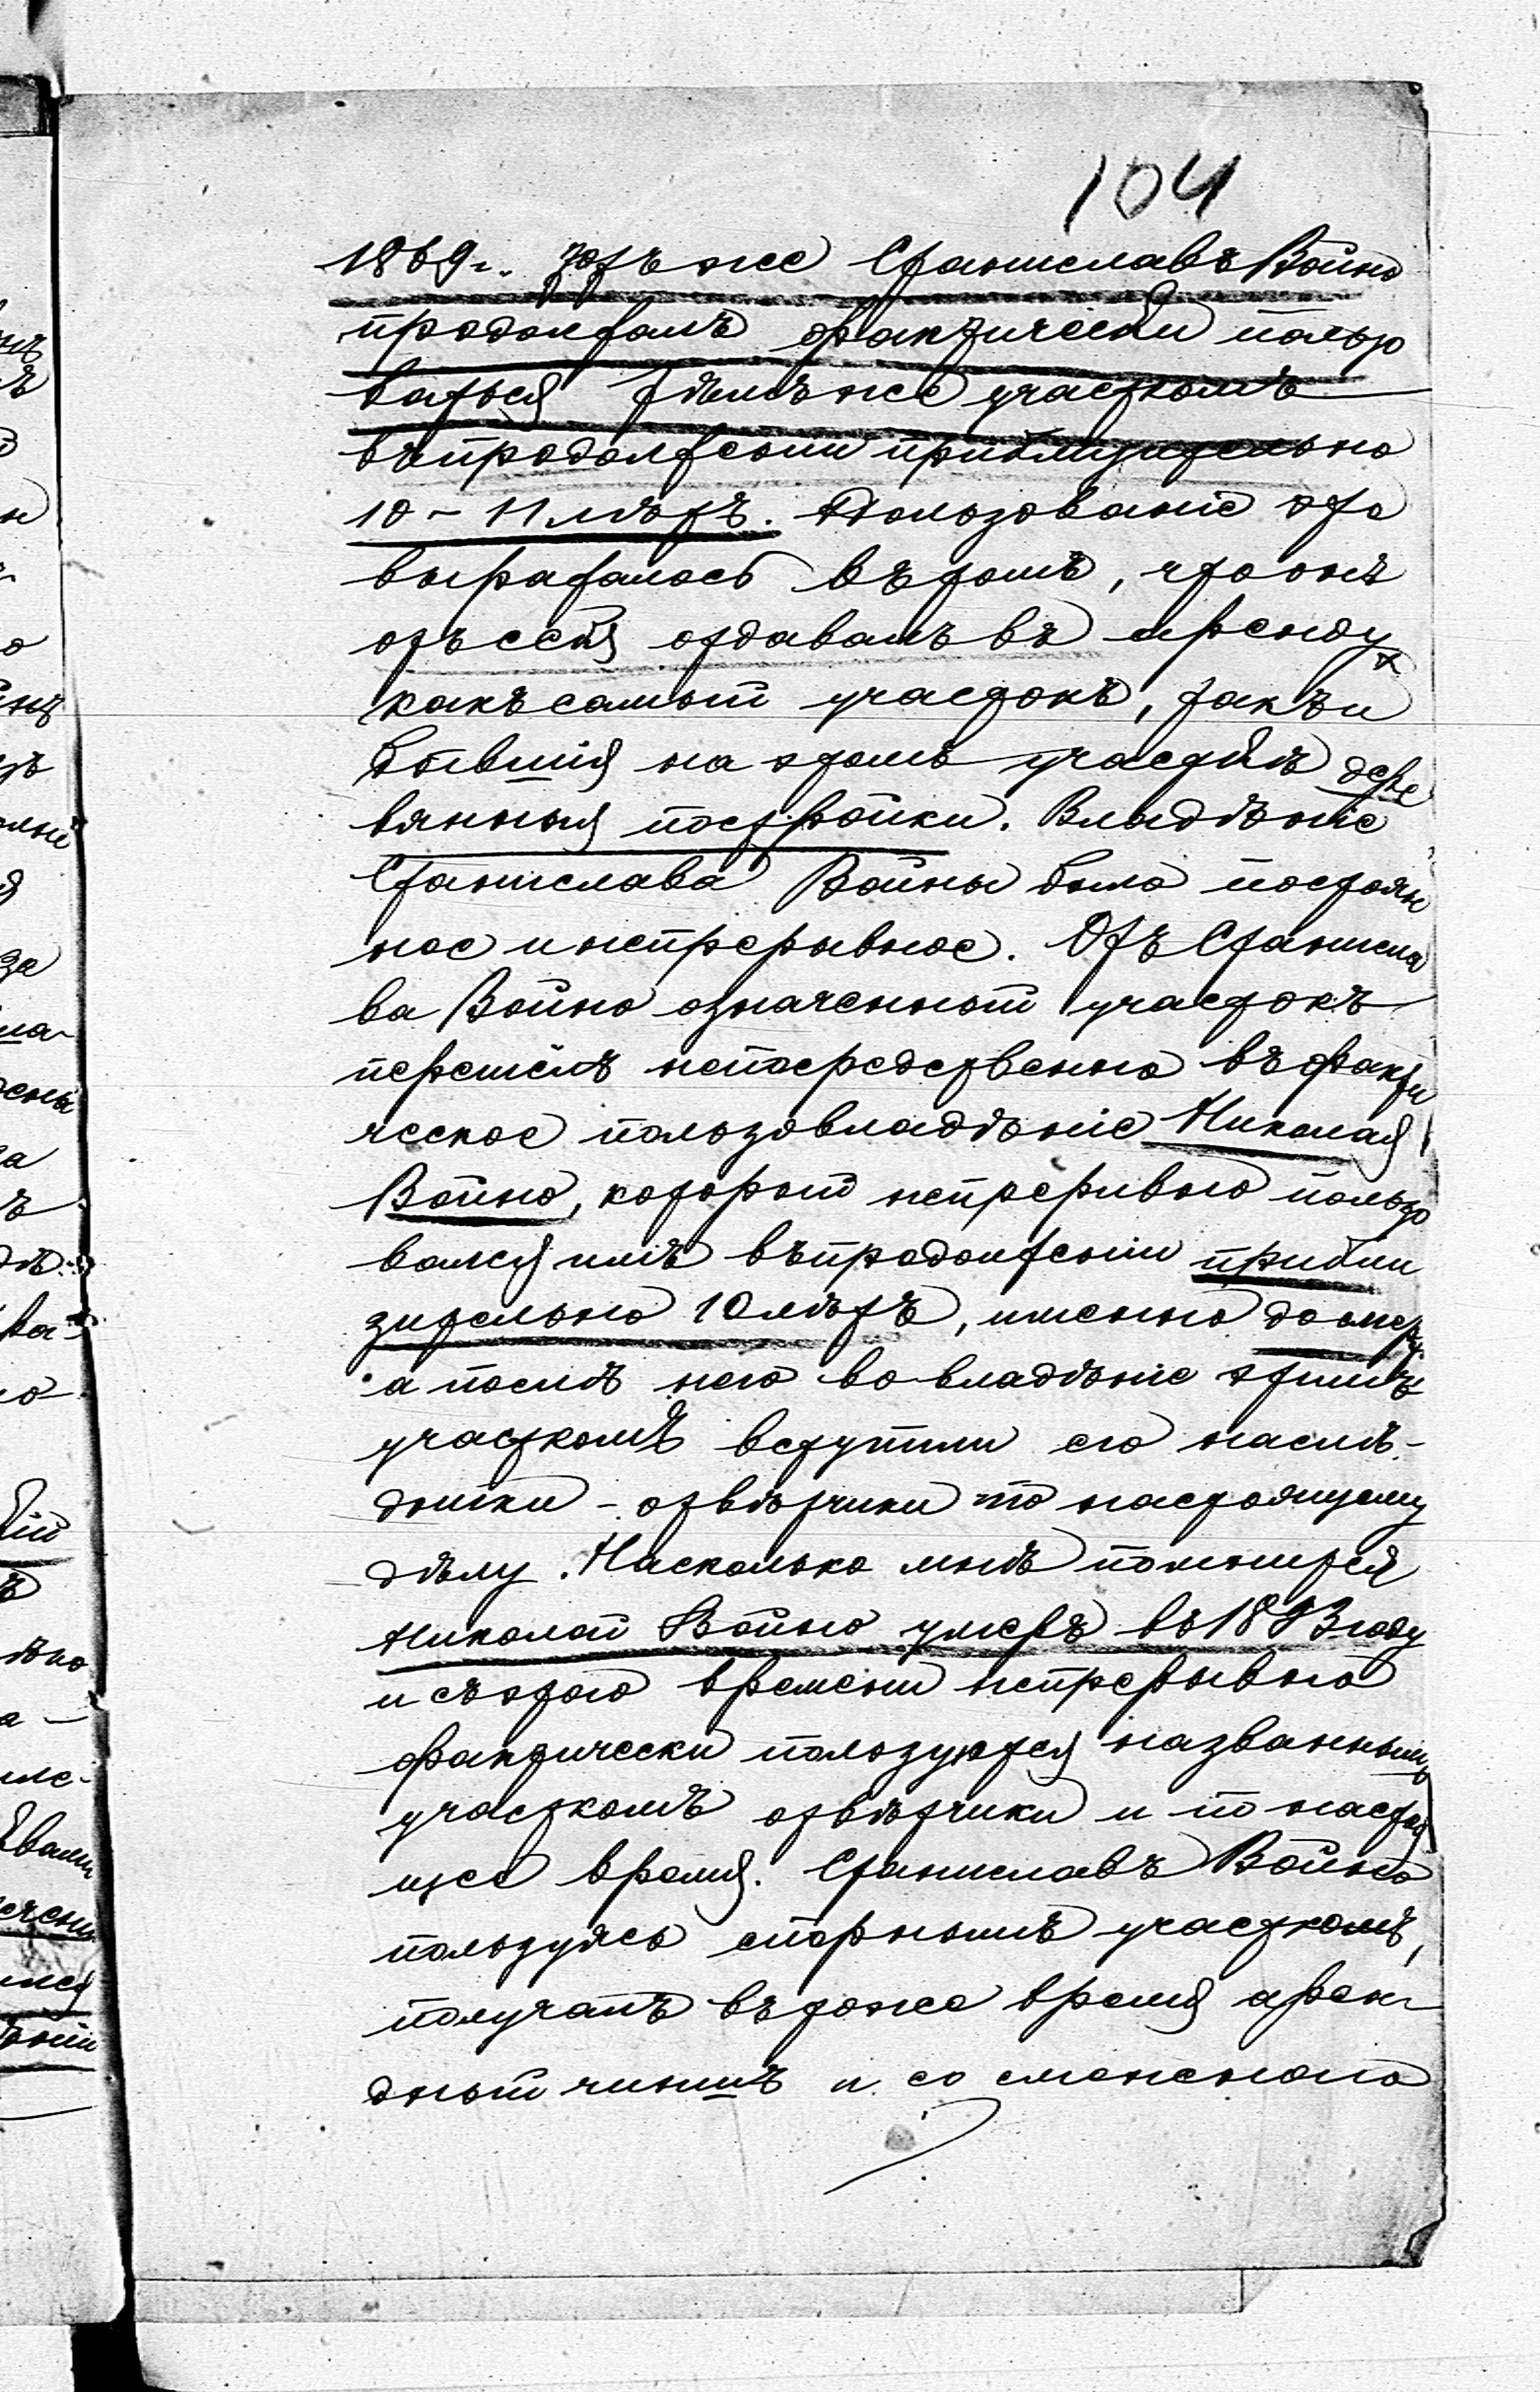 104
1869 г. тотъ же Станиславъ Войно
продолжалъ фактически пользо
ваться тѣмъ же участкомъ
въ продолженіи приблизительно
10 – 11 лѣтъ. Пользованіе это
выражалось въ томъ, что онъ
отъ себя отдавалъ въ аренду
какъ самый участокъ, такъ и
бывшія на этомъ участкѣ дере
вянныя постройки. Владѣніе
Станислава Войны было постоян
ное и непрерывное. Отъ Станисла
ва Войно означенный участокъ
перешелъ непосредственно въ факти
ческое пользовладѣніе Николая
Войно, который непрерывно пользо
вался имъ въ продолженіи прибли
зительно 10 лѣтъ, именно до смерти
а послѣ него во владѣніе этимъ
участкомъ вступили его наслѣ-
дники – отвѣтчики по настоящему
дѣлу. Насколько мнѣ помнится
Николай Войно умеръ въ 1893 году
и съ этого времени непрерывно
фактически пользуются названнымъ
участкомъ отвѣтчики и по настоя
щее время. Станиславъ Войно
пользуясь спорнымъ участкомъ,
получалъ въ тоже время арен-
дный чиншъ и со смежнаго